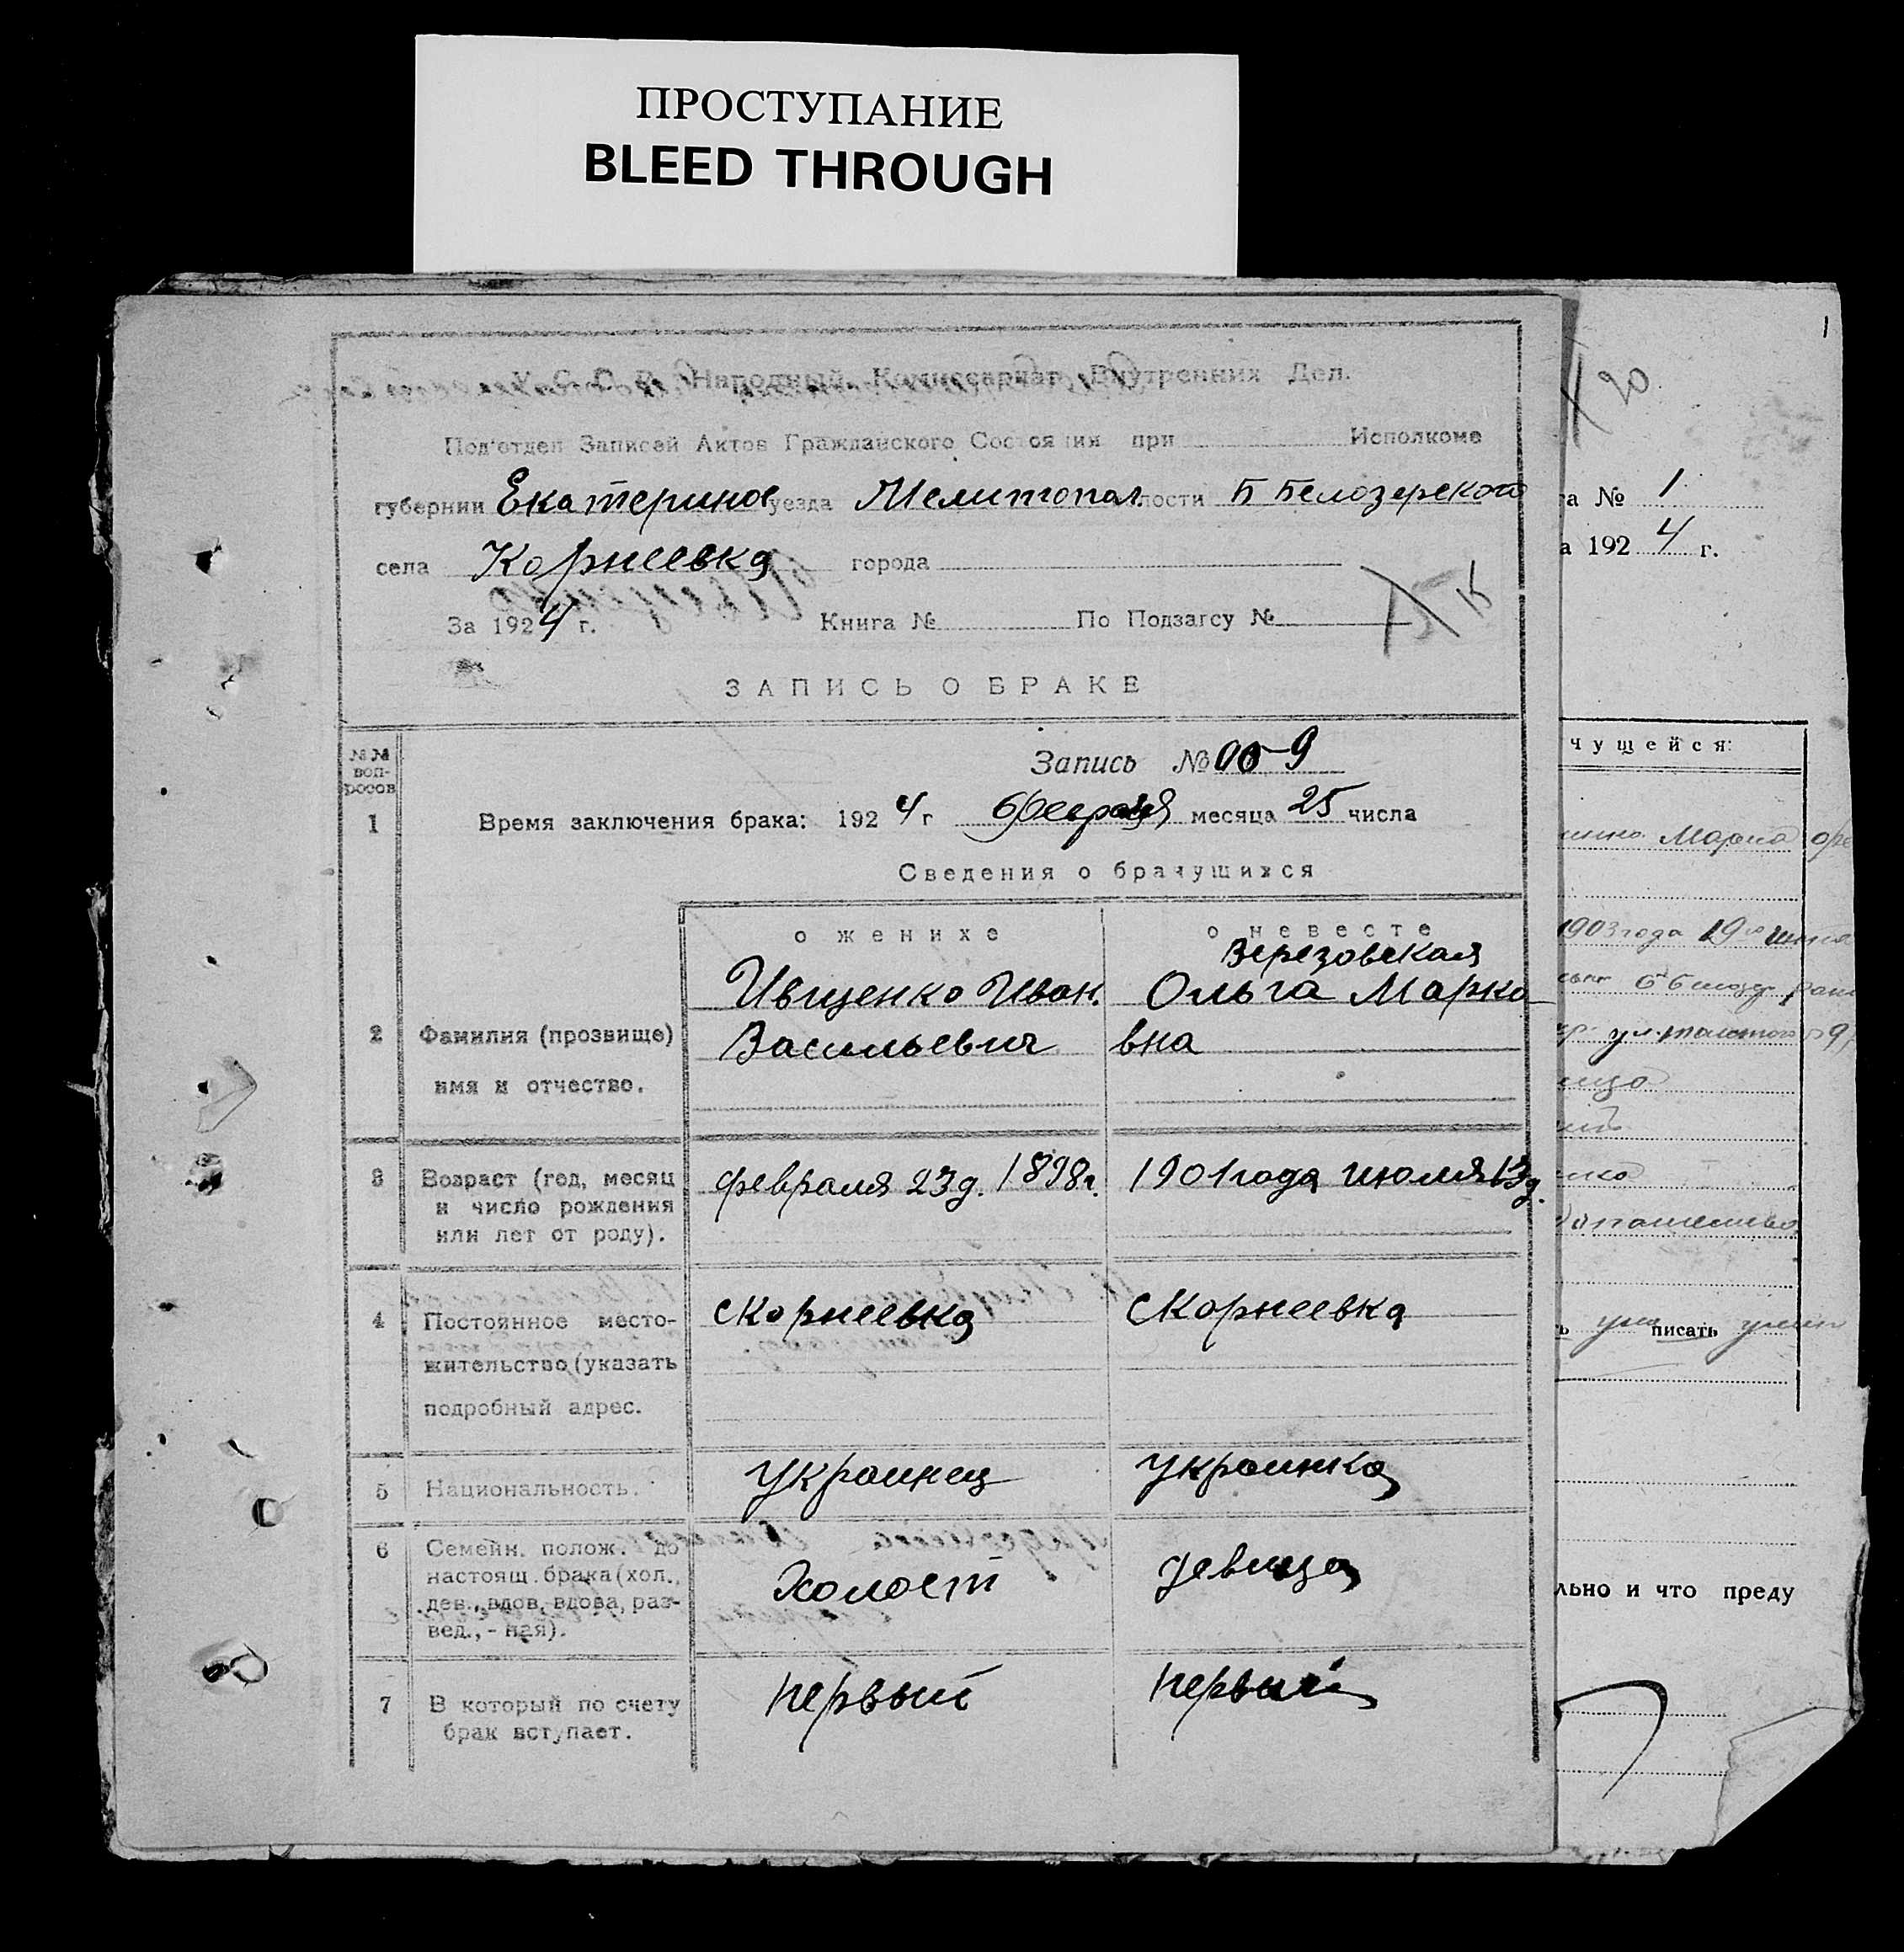 ПРОСТУПАНИЕ
BLEED THROUGH
У. С. С. Р. Народный Комиссариат Внутренних Дел.
Под'отдел Записей Актов Гражданского Состояния при Исполкоме
губернии Екатеринос уезда Мелитопол. лости Б Белозерского
села Корнеевка города
За 1924 г. Книга № По Подзагсу №
15
ЗАПИСЬ О БРАКЕ
№№ воп-
росов
Запись № 9
1 Время заключения брака: 1924 г февраля месяца 25 числа
Сведения о брачущихся
о женихе о невесте
Березовская
Ивщенко Иван. Ольга Марко
2 Фамилия (прозвище) Васильевич вна
имя и отчество.
3 Возраст (год, месяц февраля 23д. 1898г. 1901 года июля 13д.
и число рождения
или лет от роду).
4 Постоянное место- с Корнеевка с Корнеевка
жительство (указать
подробный адрес.
5 Национальность. Украинец Украинка
6 Семейн. полож. до
настоящ. брака (хол., Холост девица
дев., вдов, вдова, раз-
вед., - ная).
7 В который по счету первый первый
брак вступает.
1
20
а № 1
а 1924 г.
чущейся:
Мария
1903 года 19го
ул. толстого
ица
ь писать
льно и что преду